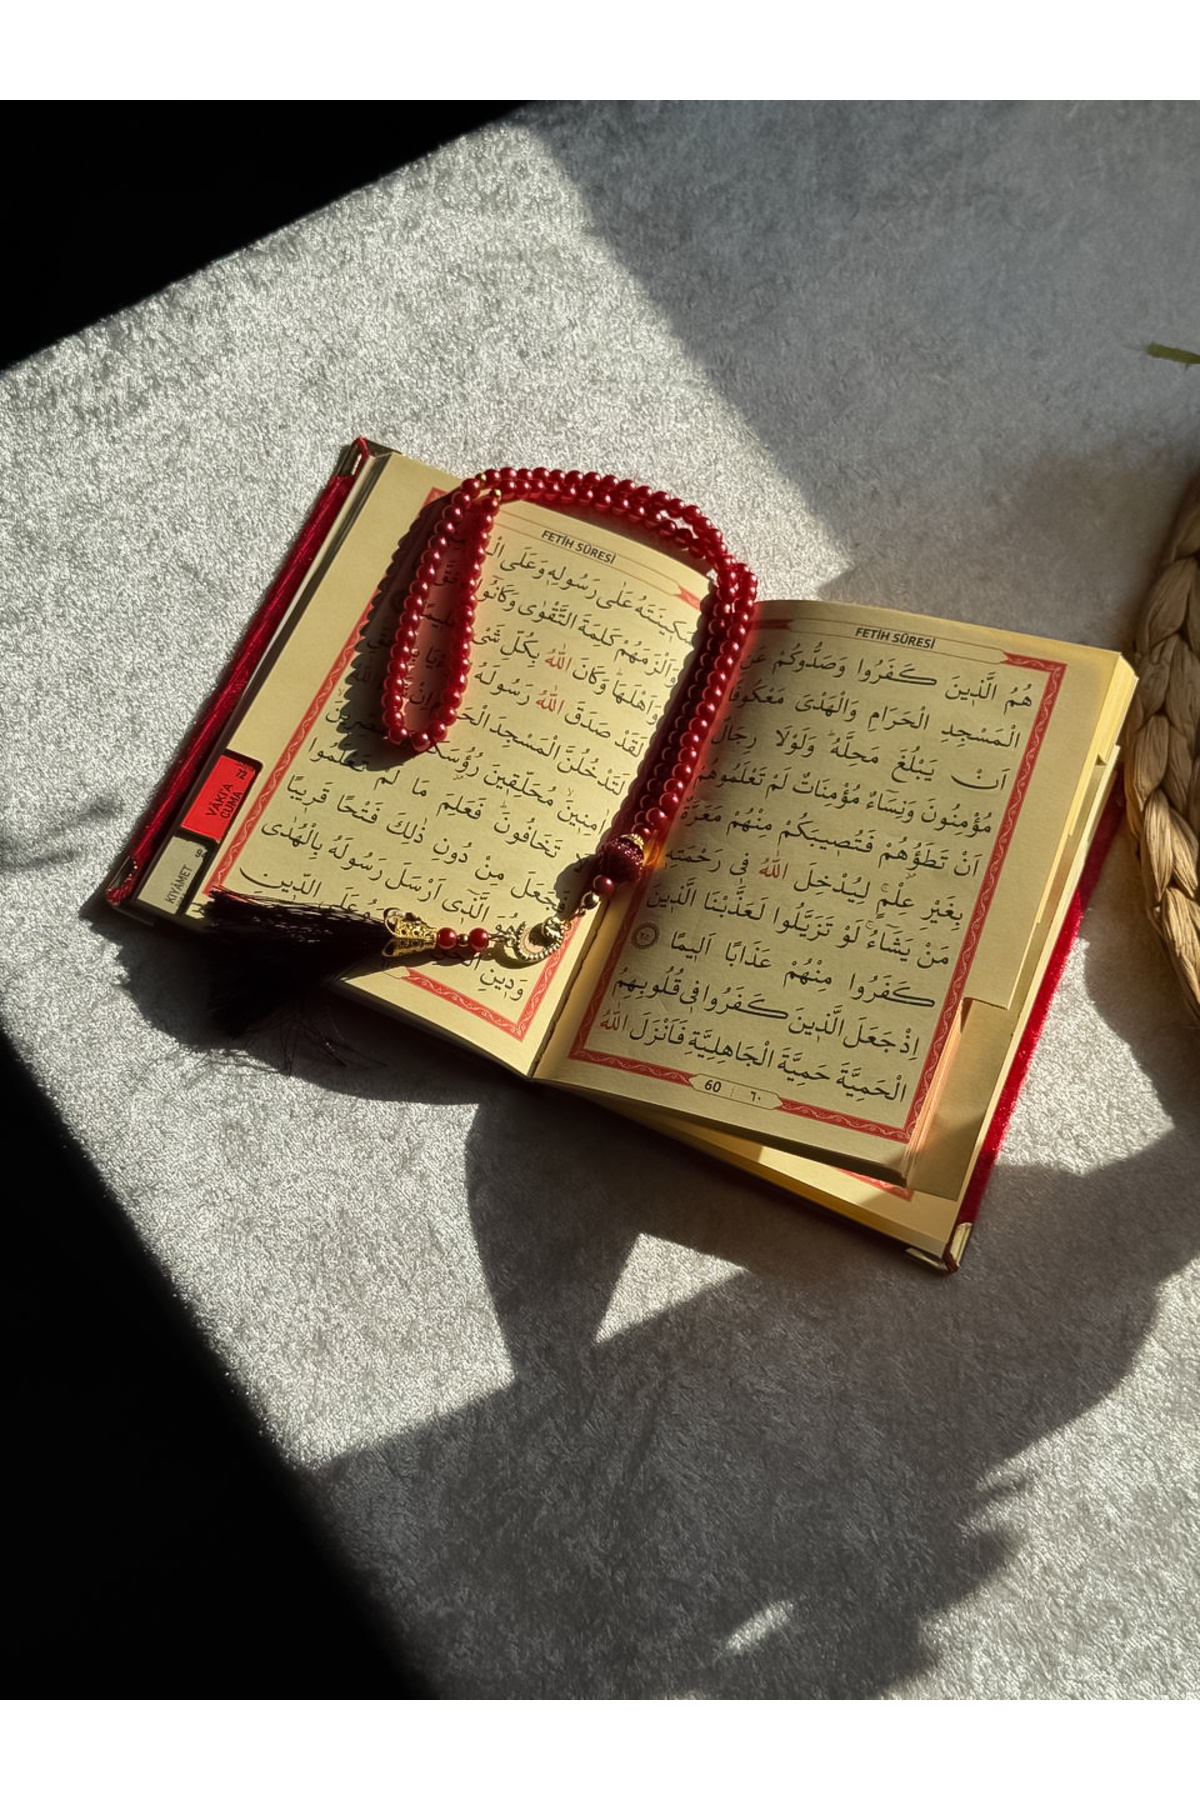 FETİH SÛRESİ
هُمُ الَّذٖينَ كَفَرُوا وَصَدُّوكُمْ عَنِ
الْمَسْجِدِ الْحَرَامِ وَالْهَدْىَ مَعْكُوفًا
اَنْ يَبْلُغَ مَحِلَّهُ وَلَوْلَا رِجَالٌ
مُؤْمِنُونَ وَنِسَٓاءٌ مُؤْمِنَاتٌ لَمْ تَعْلَمُوهُمْ
اَنْ تَطَؤُ۫هُمْ فَتُصٖيبَكُمْ مِنْهُمْ مَعَرَّةٌ
بِغَيْرِ عِلْمٍ لِيُدْخِلَ اللّٰهُ فٖى رَحْمَتِهٖ
مَنْ يَشَٓاءُ لَوْ تَزَيَّلُوا لَعَذَّبْنَا الَّذٖينَ
كَفَرُوا مِنْهُمْ عَذَابًا اَلٖيمًا ٢٥
اِذْ جَعَلَ الَّذٖينَ كَفَرُوا فٖى قُلُوبِهِمُ
الْحَمِيَّةَ حَمِيَّةَ الْجَاهِلِيَّةِ فَاَنْزَلَ اللّٰهُ
60 ٦٠
FETİH SÛRESİ
سَكٖينَتَهُ عَلٰى رَسُولِهٖ وَعَلَى
وَاَلْزَمَهُمْ كَلِمَةَ التَّقْوٰى وَكَانُٓوا
وَاَهْلَهَا وَكَانَ اللّٰهُ بِكُلِّ شَىْءٍ
لَقَدْ صَدَقَ اللّٰهُ رَسُولَهُ
لَتَدْخُلُنَّ الْمَسْجِدَ الْحَرَامَ اِنْ
اٰمِنٖينَ مُحَلِّقٖينَ رُؤُ۫سَكُمْ
لَا تَخَافُونَ فَعَلِمَ مَا لَمْ تَعْلَمُوا
فَجَعَلَ مِنْ دُونِ ذٰلِكَ فَتْحًا قَرٖيبًا
هُوَ الَّذٖٓى اَرْسَلَ رَسُولَهُ بِالْهُدٰى
وَدٖينِ الْحَقِّ عَلَى الدّٖينِ
VÂKI'A 72
CUMA
KIYÂMET